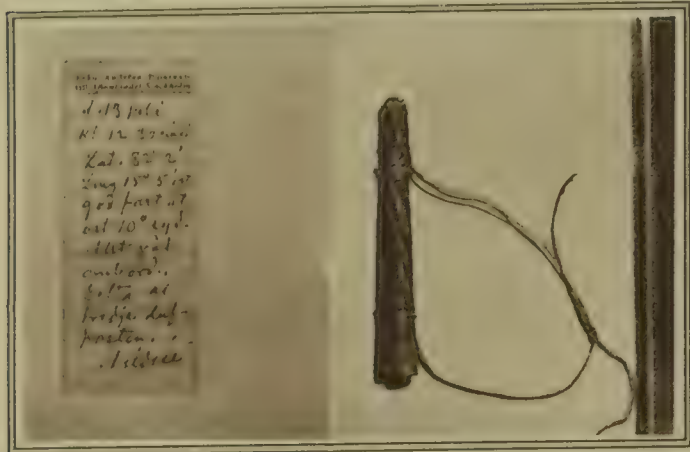 d. 13 juli
kl. 12 30 midd
Lat. 82° 2'
Long 15° 5' ost
god fart åt
ost 10° syd.
Allt väl
ombord.
är
tredje duf-
posten.
Andrée